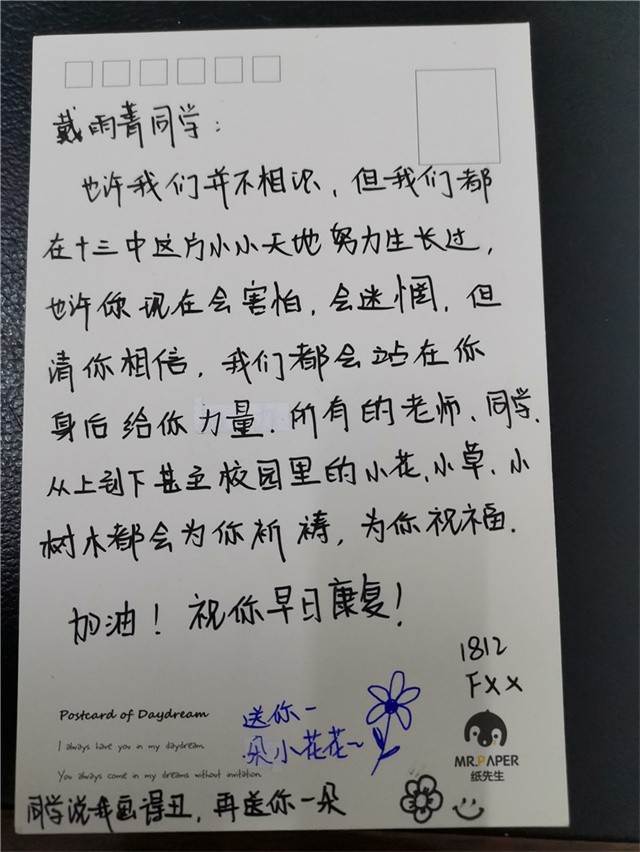 戴雨菁同学：
也许我们并不相识，但我们都
在十三中这片小小天地努力生长过，
也许你现在会害怕，会迷惘，但
请你相信，我们都会站在你
身后给你力量．所有的老师、同学，
从上到下甚至校园里的小花、小草、小
树木都会为你祈祷，为你祝福．
加油！祝你早日康复！
1812
FXX
Postcard of Daydream
I always have you in my daydream.
You always come in my dreams without invitation.
送你一
朵小花花~
MR.PAPER
纸先生
同学说我画得丑，再送你一朵